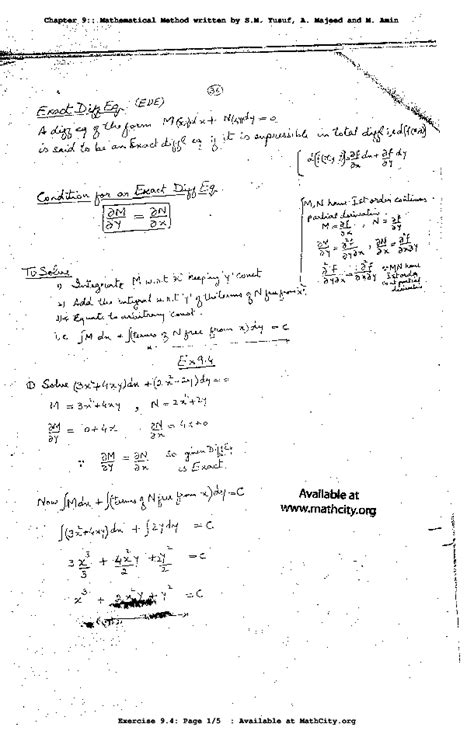 Chapter 9:: Mathematical Method written by S.M. Yusuf, A. Majeed and M. Amin
Exact Diff Eq. (EDE)
A diff eq of the form M(x,y)dx + N(x,y)dy = 0
is said to be an Exact diffl eq if it is expressible in total diffl i.e d(f(x,y))
d(f(x,y)) = ∂f/∂x dx + ∂f/∂y dy
Condition for an Exact Diff Eq.
∂M/∂y = ∂N/∂x
M, N have Ist order continous
partial derivative
M = ∂f/∂x , N = ∂f/∂y
∂M/∂y = ∂²f/∂y∂x , ∂N/∂x = ∂²f/∂x∂y
∂²f/∂y∂x = ∂²f/∂x∂y ∵ M,N have
Ist order
partial
derivative
To Solve
1) Integrate M w.r.t 'x' keeping 'y' const
2) Add the integral w.r.t 'y' of the terms of N free from 'x'.
3) Equate to arbitrary const.
i.e ∫M dx + ∫(terms of N free from x)dy = C
Ex 9.4
① Solve (3x²+4xy)dx + (2x²+2y)dy = 0
M = 3x²+4xy , N = 2x²+2y
∂M/∂y = 0+4x , ∂N/∂x = 4x+0
∵ ∂M/∂y = ∂N/∂x so given Diff Eq
is Exact.
Now ∫Mdx + ∫(terms of N free from x)dy = C
∫(3x²+4xy)dx + ∫2ydy = C
3x³/3 + 4x²y/2 + 2y²/2 = C
x³ + 2x²y + y² = C
Available at
www.mathcity.org
Exercise 9.4: Page 1/5 : Available at MathCity.org